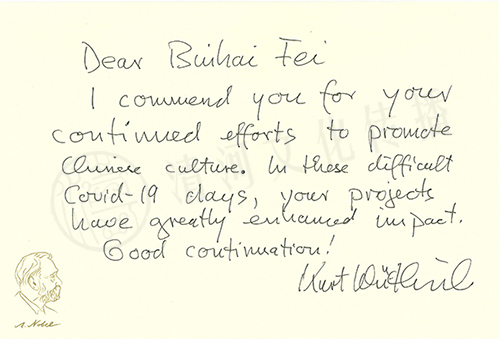 Dear Binhai Fei
I commend you for your
continued efforts to promote
Chinese culture. In these difficult
Covid-19 days, your projects
have greatly enhanced impact.
Good continuation!
Kurt Wüthrich
A. Nobel